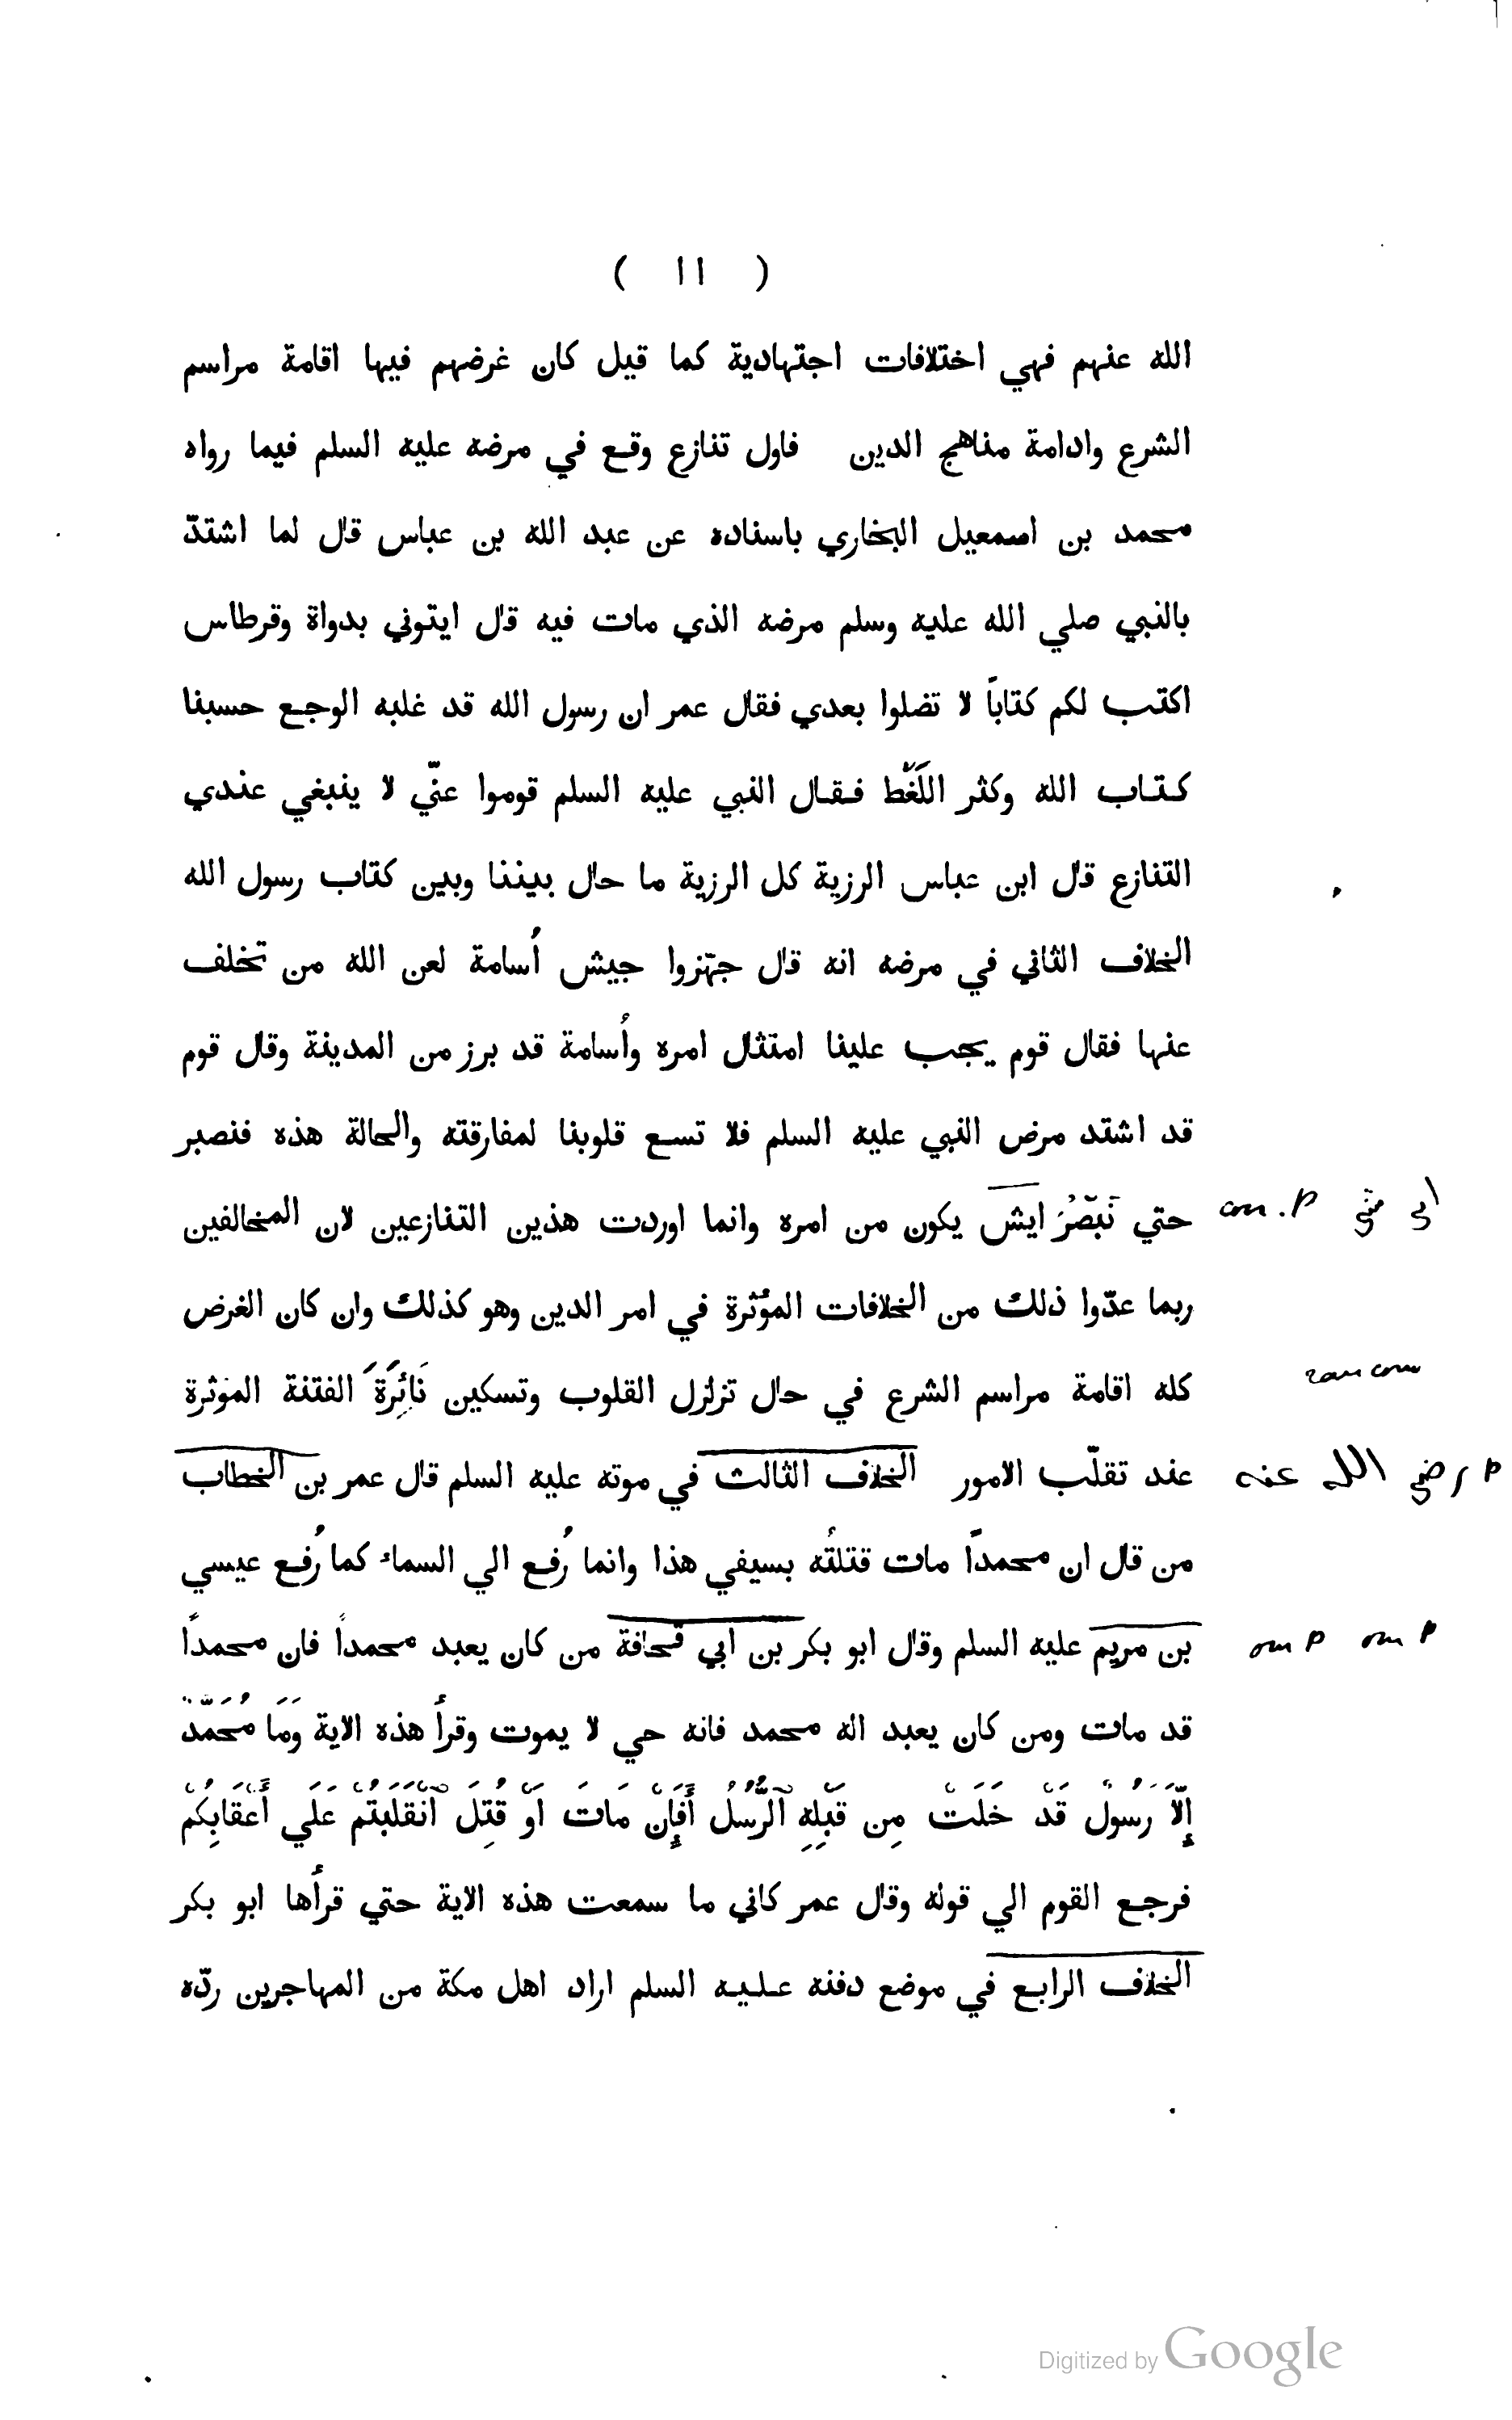 ( ١١ )
الله عنهم فهي اختلافات اجتهادية كما قيل كان غرضهم فيها اقامة مراسم
الشرع وادامة مناهج الدين فاول تنازع وقع في مرضه عليه السلم فيما رواه
محمد بن اسمعيل البخاري باسناده عن عبد الله بن عباس قال لما اشتدّ
بالنبي صلي الله عليه وسلم مرضه الذي مات فيه قال ايتوني بدواة وقرطاس
اكتب لكم كتاباً لا تضلوا بعدي فقال عمر ان رسول الله قد غلبه الوجع حسبنا
كتاب الله وكثر اللَّغَطُ فقال النبي عليه السلم قوموا عنّي لا ينبغي عندي
التنازع قال ابن عباس الرزية كل الرزية ما حال بيننا وبين كتاب رسول الله
الخلاف الثاني في مرضه انه قال جهّزوا جيش أُسامة لعن الله من تخلف
عنها فقال قوم يجب علينا امتثال امره وأُسامة قد برز من المدينة وقال قوم
قد اشتد مرض النبي عليه السلم فلا تسع قلوبنا لمفارقته والحالة هذه فنصبر
حتي نَبْصُرَ ايش يكون من امره وانما اوردت هذين التنازعين لان المخالفين om. P اي شي
ربما عدّوا ذلك من الخلافات المؤثرة في امر الدين وهو كذلك وان كان الغرض
كله اقامة مراسم الشرع في حال تزلزل القلوب وتسكين نَائِرَةَ الفتنة المؤثرة
عند تقلّب الامور الخلاف الثالث في موته عليه السلم قال عمر بن الخطاب P رضي الله عنه
من قال ان محمداً مات قتلتُه بسيفي هذا وانما رُفع الي السماء كما رُفع عيسي
بن مريم عليه السلم وقال ابو بكر بن ابي قحافة من كان يعبد محمداً فان محمداً om P om P
قد مات ومن كان يعبد اله محمد فانه حي لا يموت وقرأ هذه الاية وَمَا مُحَمَّدٌ
إِلَّا رَسُولٌ قَدْ خَلَتْ مِن قَبْلِهِ ٱلرُّسُلُ أَفَإِنْ مَاتَ أَوْ قُتِلَ ٱنْقَلَبْتُمْ عَلَي أَعْقَابِكُمْ
فرجع القوم الي قوله وقال عمر كاني ما سمعت هذه الاية حتي قرأها ابو بكر
الخلاف الرابع في موضع دفنه عليه السلم اراد اهل مكة من المهاجرين ردّه
Digitized by Google